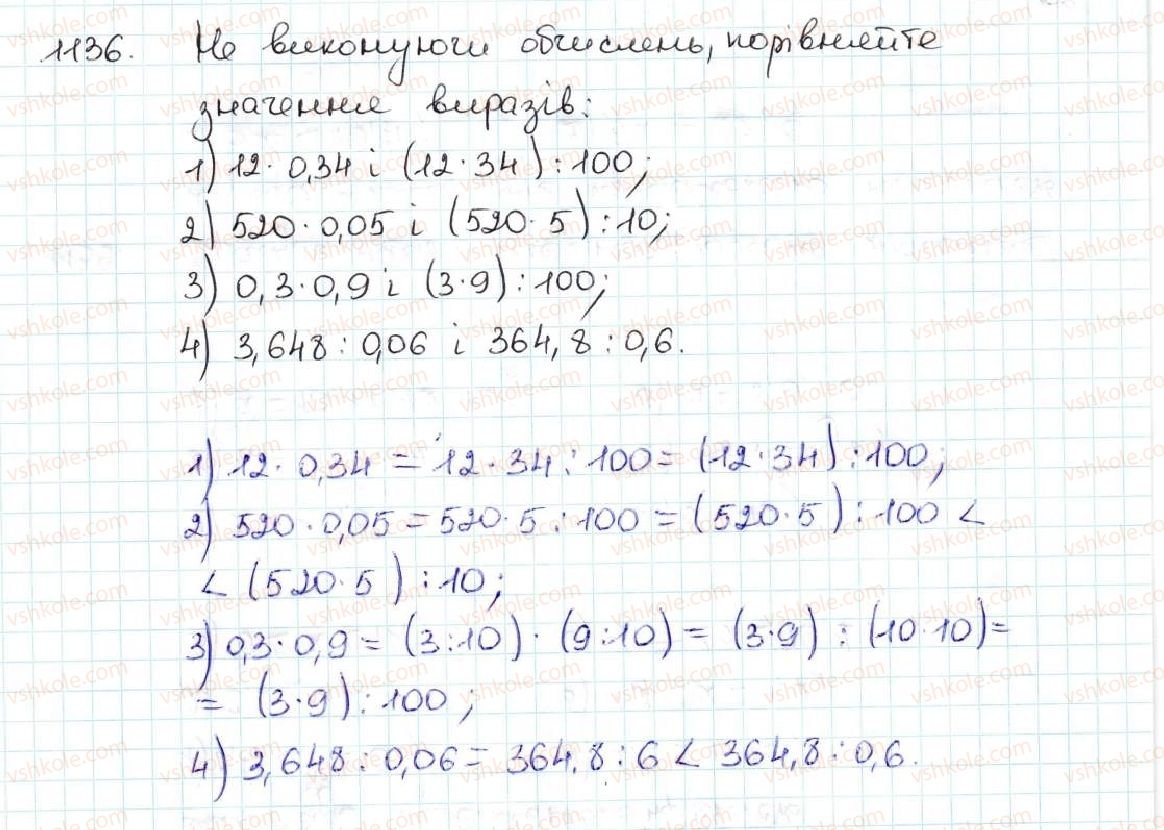 1136. Не виконуючи обчислень, порівняйте
значення виразів:
1) 12 · 0,34 і (12 · 34) : 100;
2) 520 · 0,05 і (520 · 5) : 10;
3) 0,3 · 0,9 і (3 · 9) : 100;
4) 3,648 : 0,06 і 364,8 : 0,6.
1) 12 · 0,34 = 12 · 34 : 100 = (12 · 34) : 100;
2) 520 · 0,05 = 520 · 5 : 100 = (520 · 5) : 100 <
< (520 · 5) : 10;
3) 0,3 · 0,9 = (3 : 10) · (9 : 10) = (3 · 9) : (10 · 10) =
= (3 · 9) : 100;
4) 3,648 : 0,06 = 364,8 : 6 < 364,8 : 0,6.